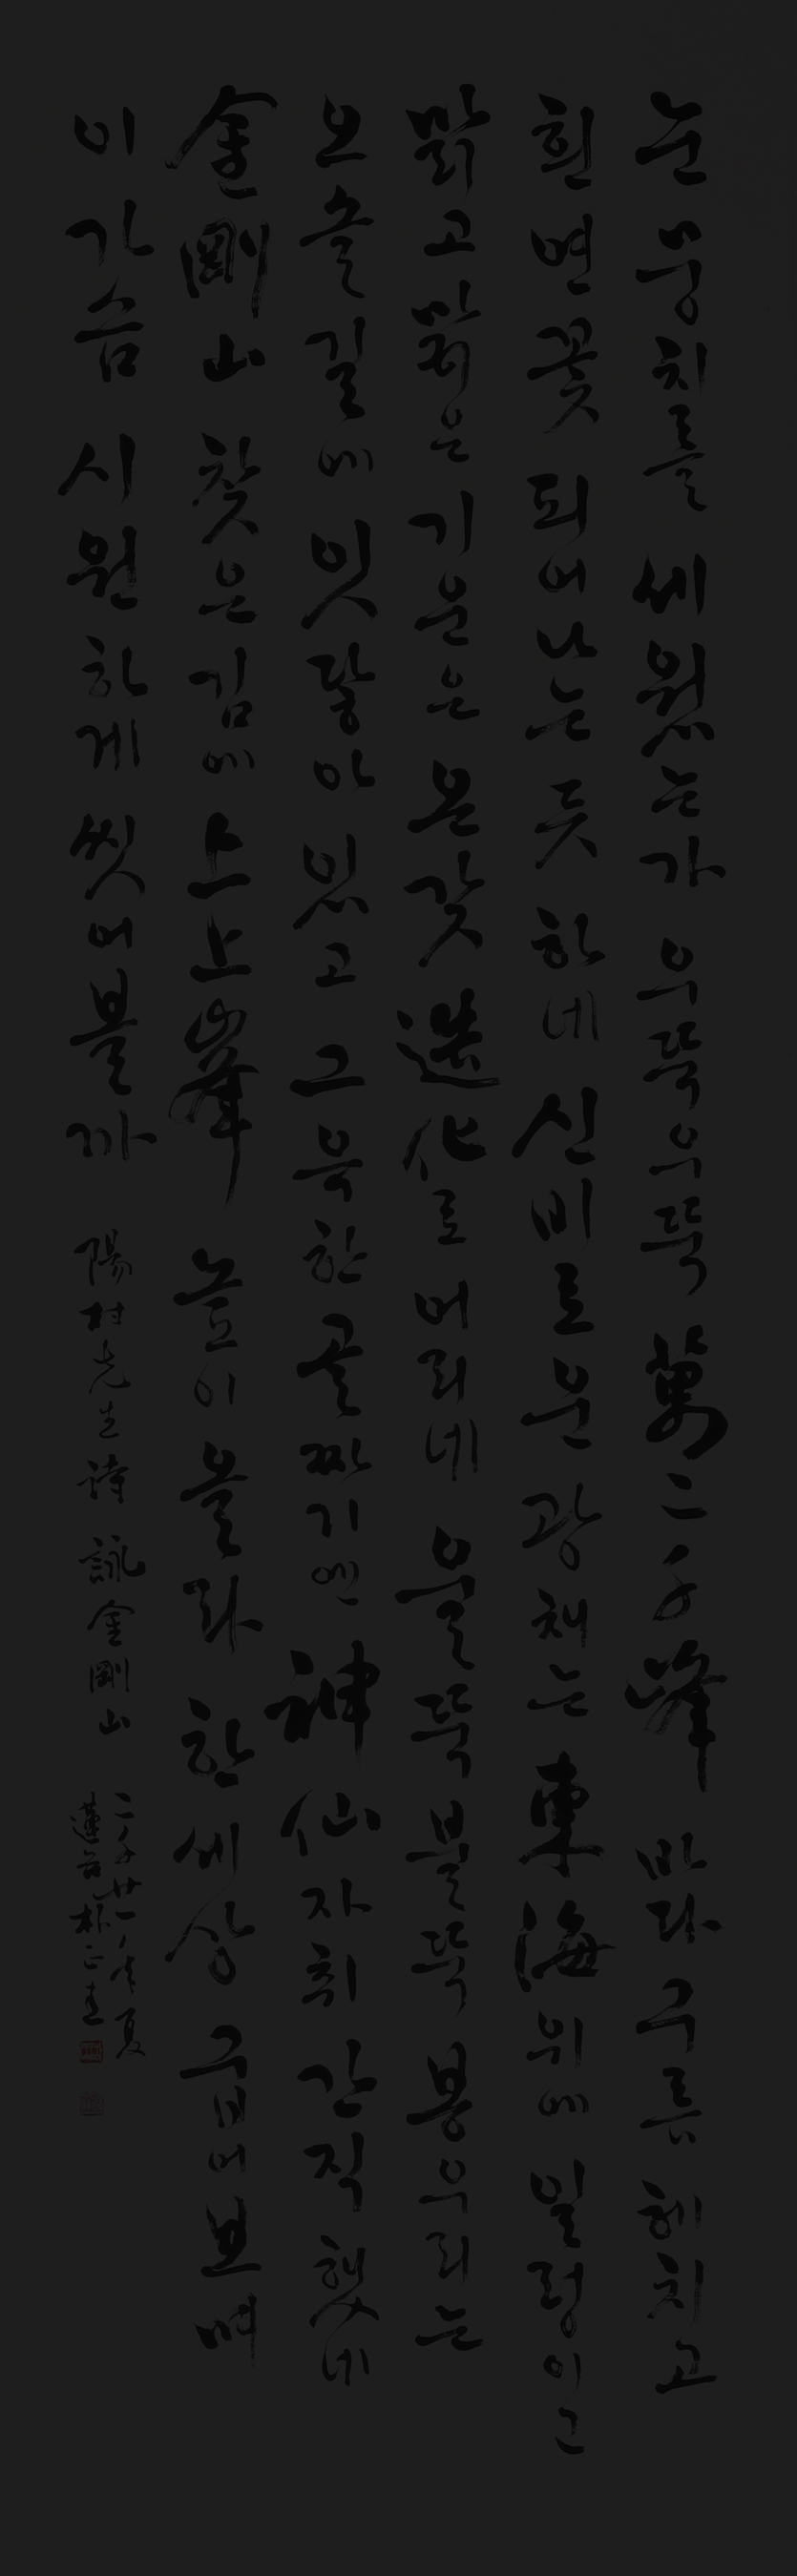 눈 뭉치를 세웠는가 우뚝우뚝 萬二千峰 바다 구름 헤치고
흰 연꽃 피어나는 듯 하네 신비로운 광채는 東海 위에 일렁이고
맑고 맑은 기운은 온갖 造化로 버리네 울뚝불뚝 봉우리는
오솔길에 잇닿아 있고 그윽한 골짜기엔 神仙 자취 간직했네
金剛山 찾은 김에 上上峯 높이 올라 한세상 굽어보며
이 가슴 시원하게 씻어볼까
陽村先生詩 詠金剛山
二千廿一年夏